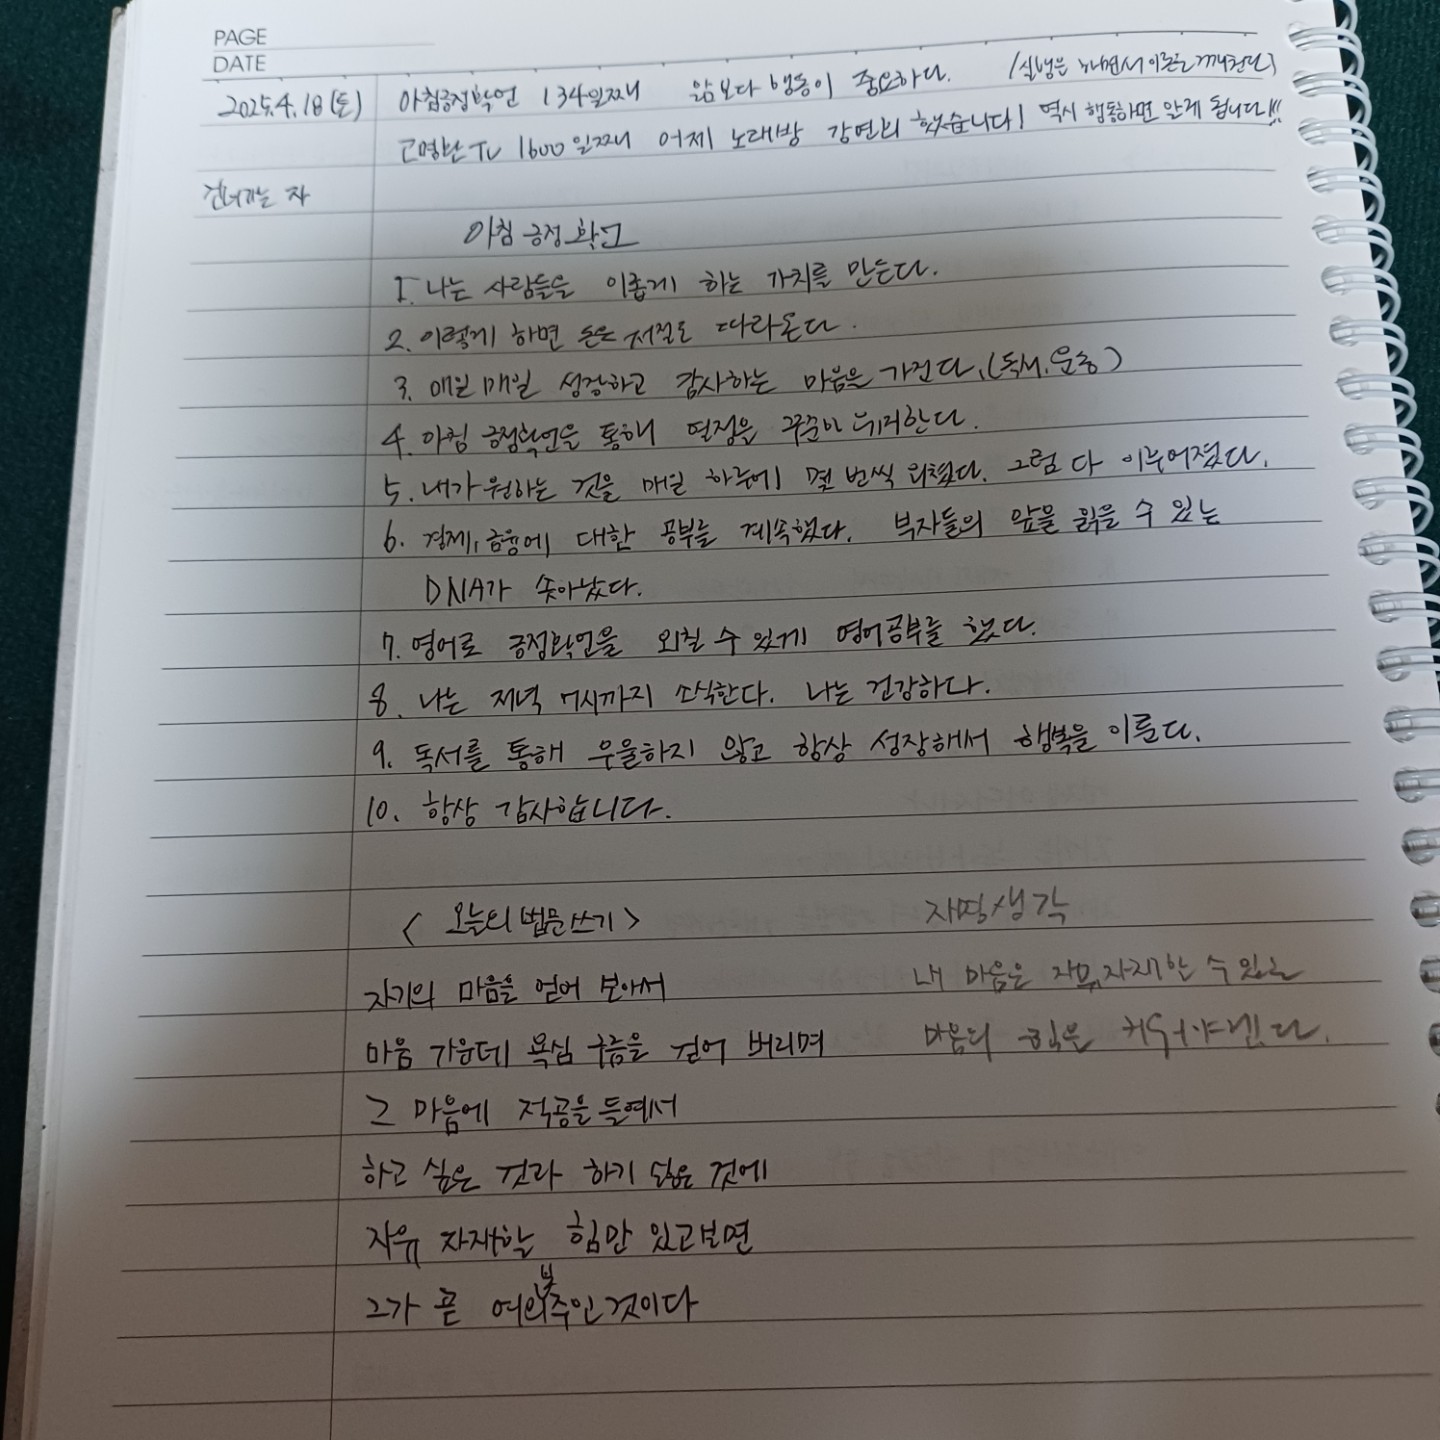 PAGE
DATE
2025.4.18(토) 아침긍정확언 134일째 앎보다 행동이 중요하다. (실행은 하면서 이론을 깨친다)
고명환TV 1600일째 어제 노래방 강연회 했습니다! 역시 행동하면 알게 됩니다!!!
건너가는 자
아침 긍정확언
1. 나는 사람들을 이롭게 하는 가치를 만든다.
2. 이렇게 하면 돈은 저절로 따라온다.
3. 매일매일 성장하고 감사하는 마음을 가진다.(독서,운동)
4. 아침 긍정확언을 통해 열정을 꾸준히 유지한다.
5. 내가 원하는 것을 매일 하루에 몇 번씩 외쳤다. 그럼 다 이루어졌다.
6. 경제, 금융에 대한 공부를 계속했다. 부자들의 앞을 읽을 수 있는
DNA가 솟아났다.
7. 영어로 긍정확언을 외칠 수 있게 영어공부를 했다.
8. 나는 저녁 7시까지 소식한다. 나는 건강하다.
9. 독서를 통해 우울하지 않고 항상 성장해서 행복을 이룬다.
10. 항상 감사합니다.
< 오늘의 법문쓰기 > 자명생각
자기의 마음을 얻어 보아서 내 마음은 자유자재할 수 있는
마음 가운데 욕심 구름을 걷어 버리며 마음의 힘을 키워야겠다.
그 마음에 적공을 들여서
하고 싶은 것과 하기 싫은 것에
자유 자재할 힘만 있고보면
그가 곧 여의보주인 것이다